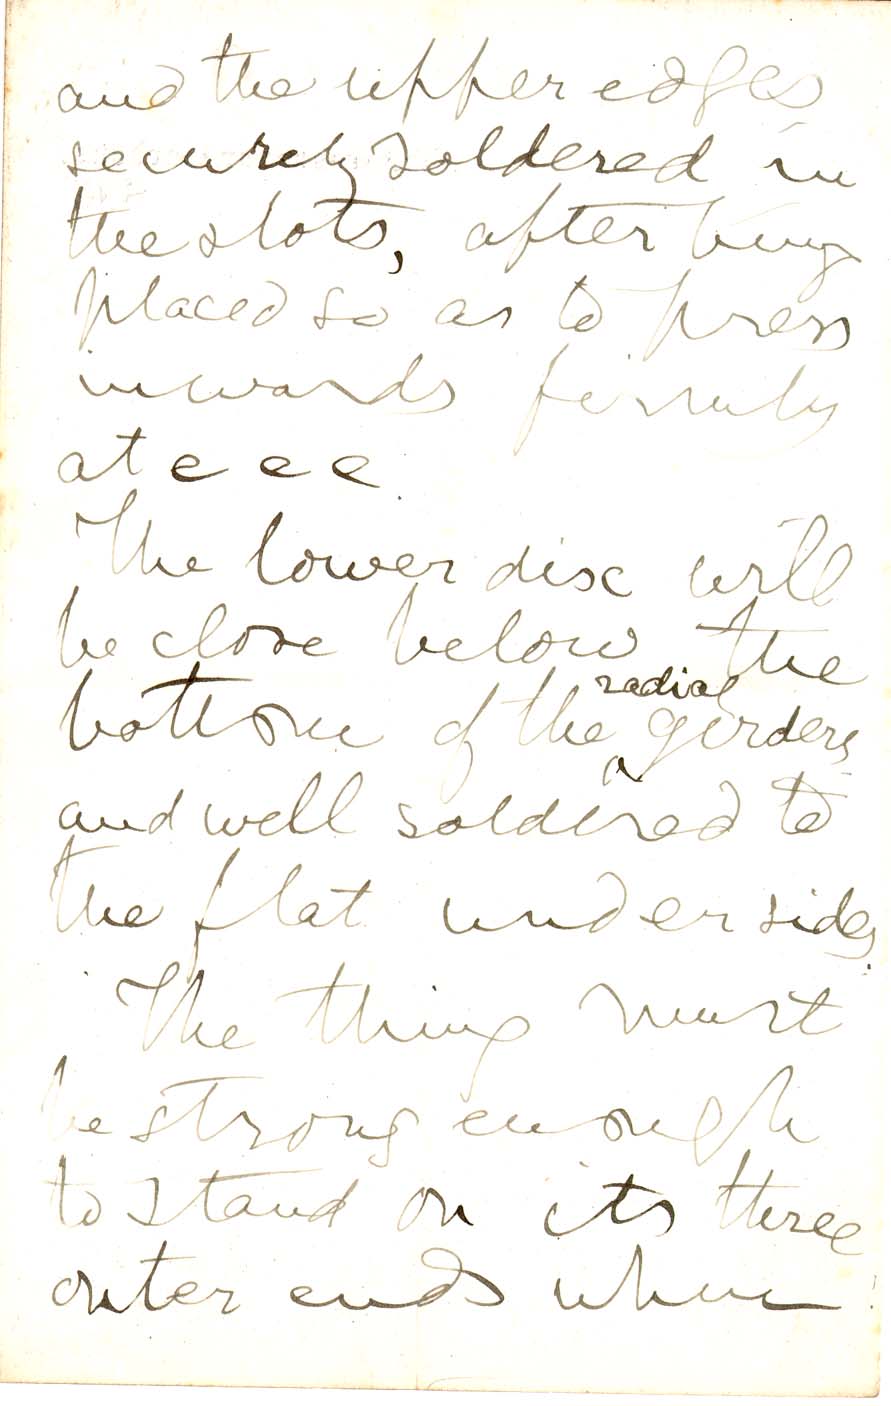 and the upper edges
securely soldered in
the slots, after being
placed so as to press
inwards firmly
at e e e.
The lower disc will
be close below the
bottom of the radial girders
and well soldered to
the flat undersides.
The thing must
be strong enough
to stand on its three
outer ends when